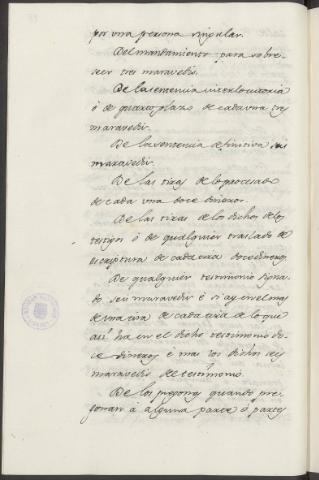 por una persona singular.
Del mandamiento para sobre-
ser tres maravedis.
De la sentencia interlocutoria
ó de quarto plazo de cada una tres
maravedis.
De la sentencia definitiva seis
maravedis.
De las tiras de lo procesado
de cada una doce dineros.
De las tiras de los dichos de los
testigos ó de qualquier traslado de
escriptura de cada tira doce dineros.
De qualquier testimonio signa-
do seis maravedis é si ay en el mas
de una tira de cada tira de lo que
assi ha en el dicho testimonio do-
ce dineros é mas los dichos seis
maravedis del testimonio.
De los pregones quando pre-
gonan á alguna parte ó partes